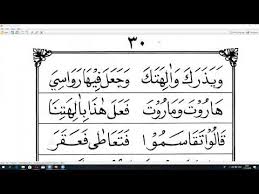 ٣٠
وَيَذَرَكَ وَاٰلِهَتَكَ وَجَعَلَ فِيهَا رَوَاسِيَ
هَارُوتَ وَمَارُوتَ فَعَلَ هٰذَا بِاٰلِهَتِنَا
قَالُوا تَقَاسَمُوا فَتَعَاطٰى فَعَقَرَ